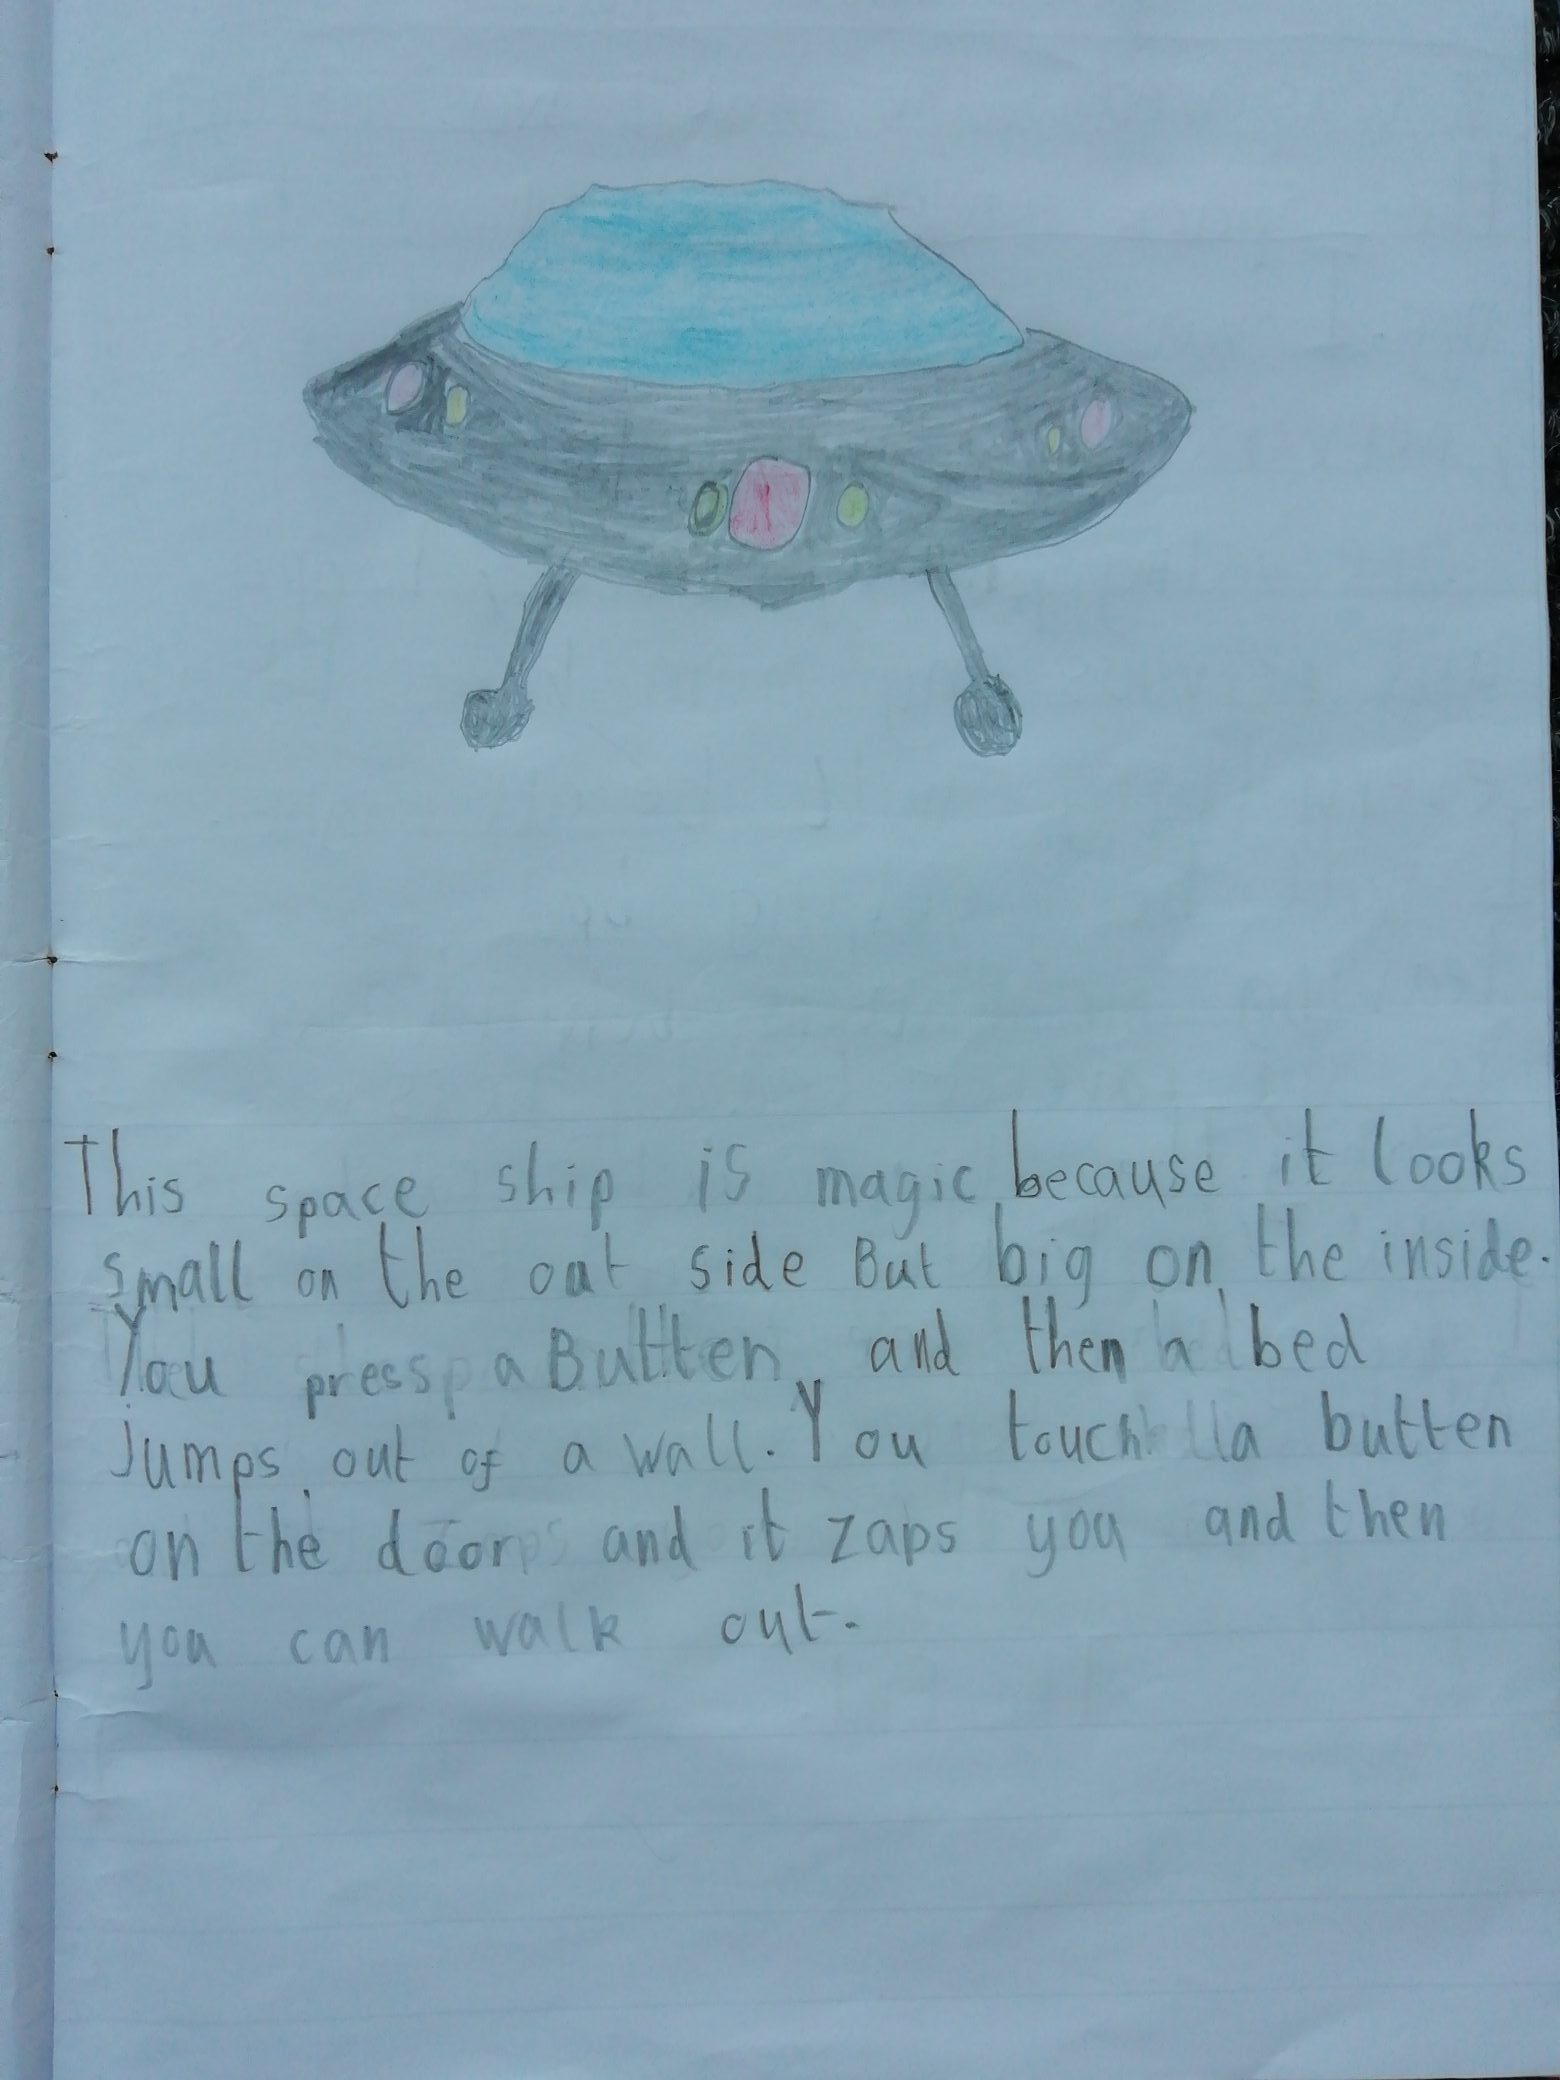 This space ship is magic because it looks
small on the out side But big on the inside.
You press a Butten and then a bed
jumps out of a wall. You touch a butten
on the door and it zaps you and then
you can walk out.